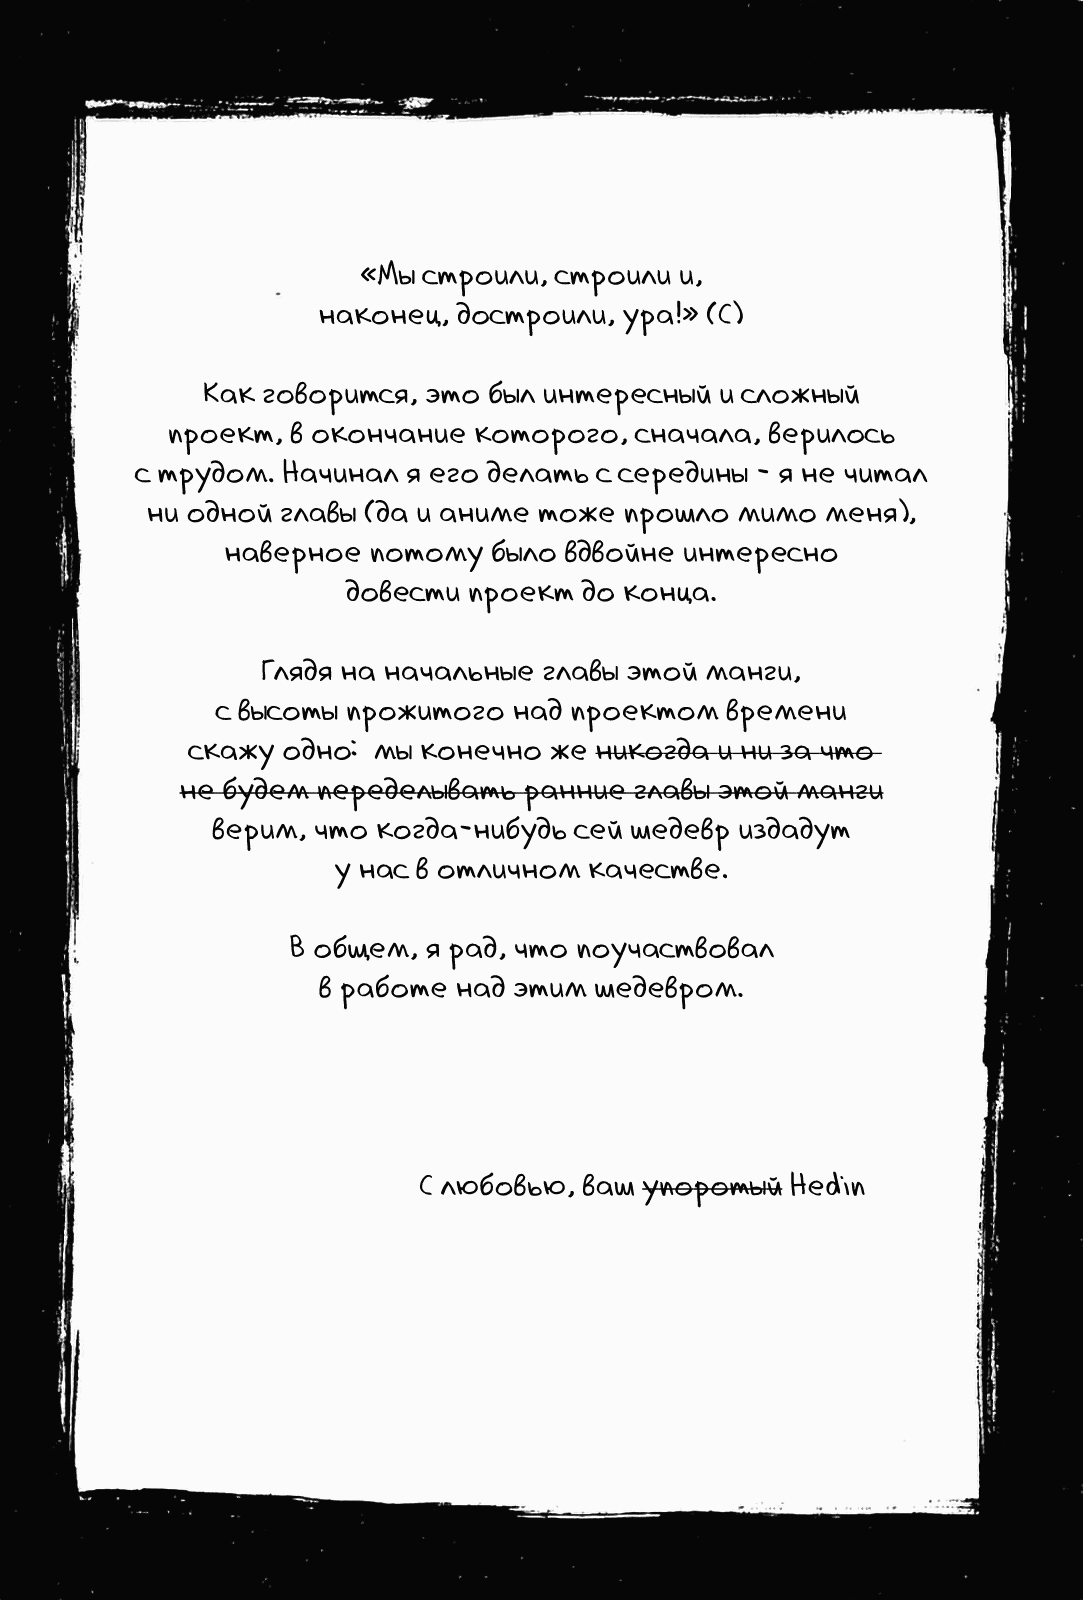 «Мы строили, строили и,
наконец, достроили, ура!» (С)
Как говорится, это был интересный и сложный
проект, в окончание которого, сначала, верилось
с трудом. Начинал я его делать с середины - я не читал
ни одной главы (да и аниме тоже прошло мимо меня),
наверное потому было вдвойне интересно
довести проект до конца.
Глядя на начальные главы этой манги,
с высоты прожитого над проектом времени
скажу одно: мы конечно же никогда и ни за что
не будем переделывать ранние главы этой манги
верим, что когда-нибудь сей шедевр издадут
у нас в отличном качестве.
В общем, я рад, что поучаствовал
в работе над этим шедевром.
С любовью, ваш упоротый Hedin